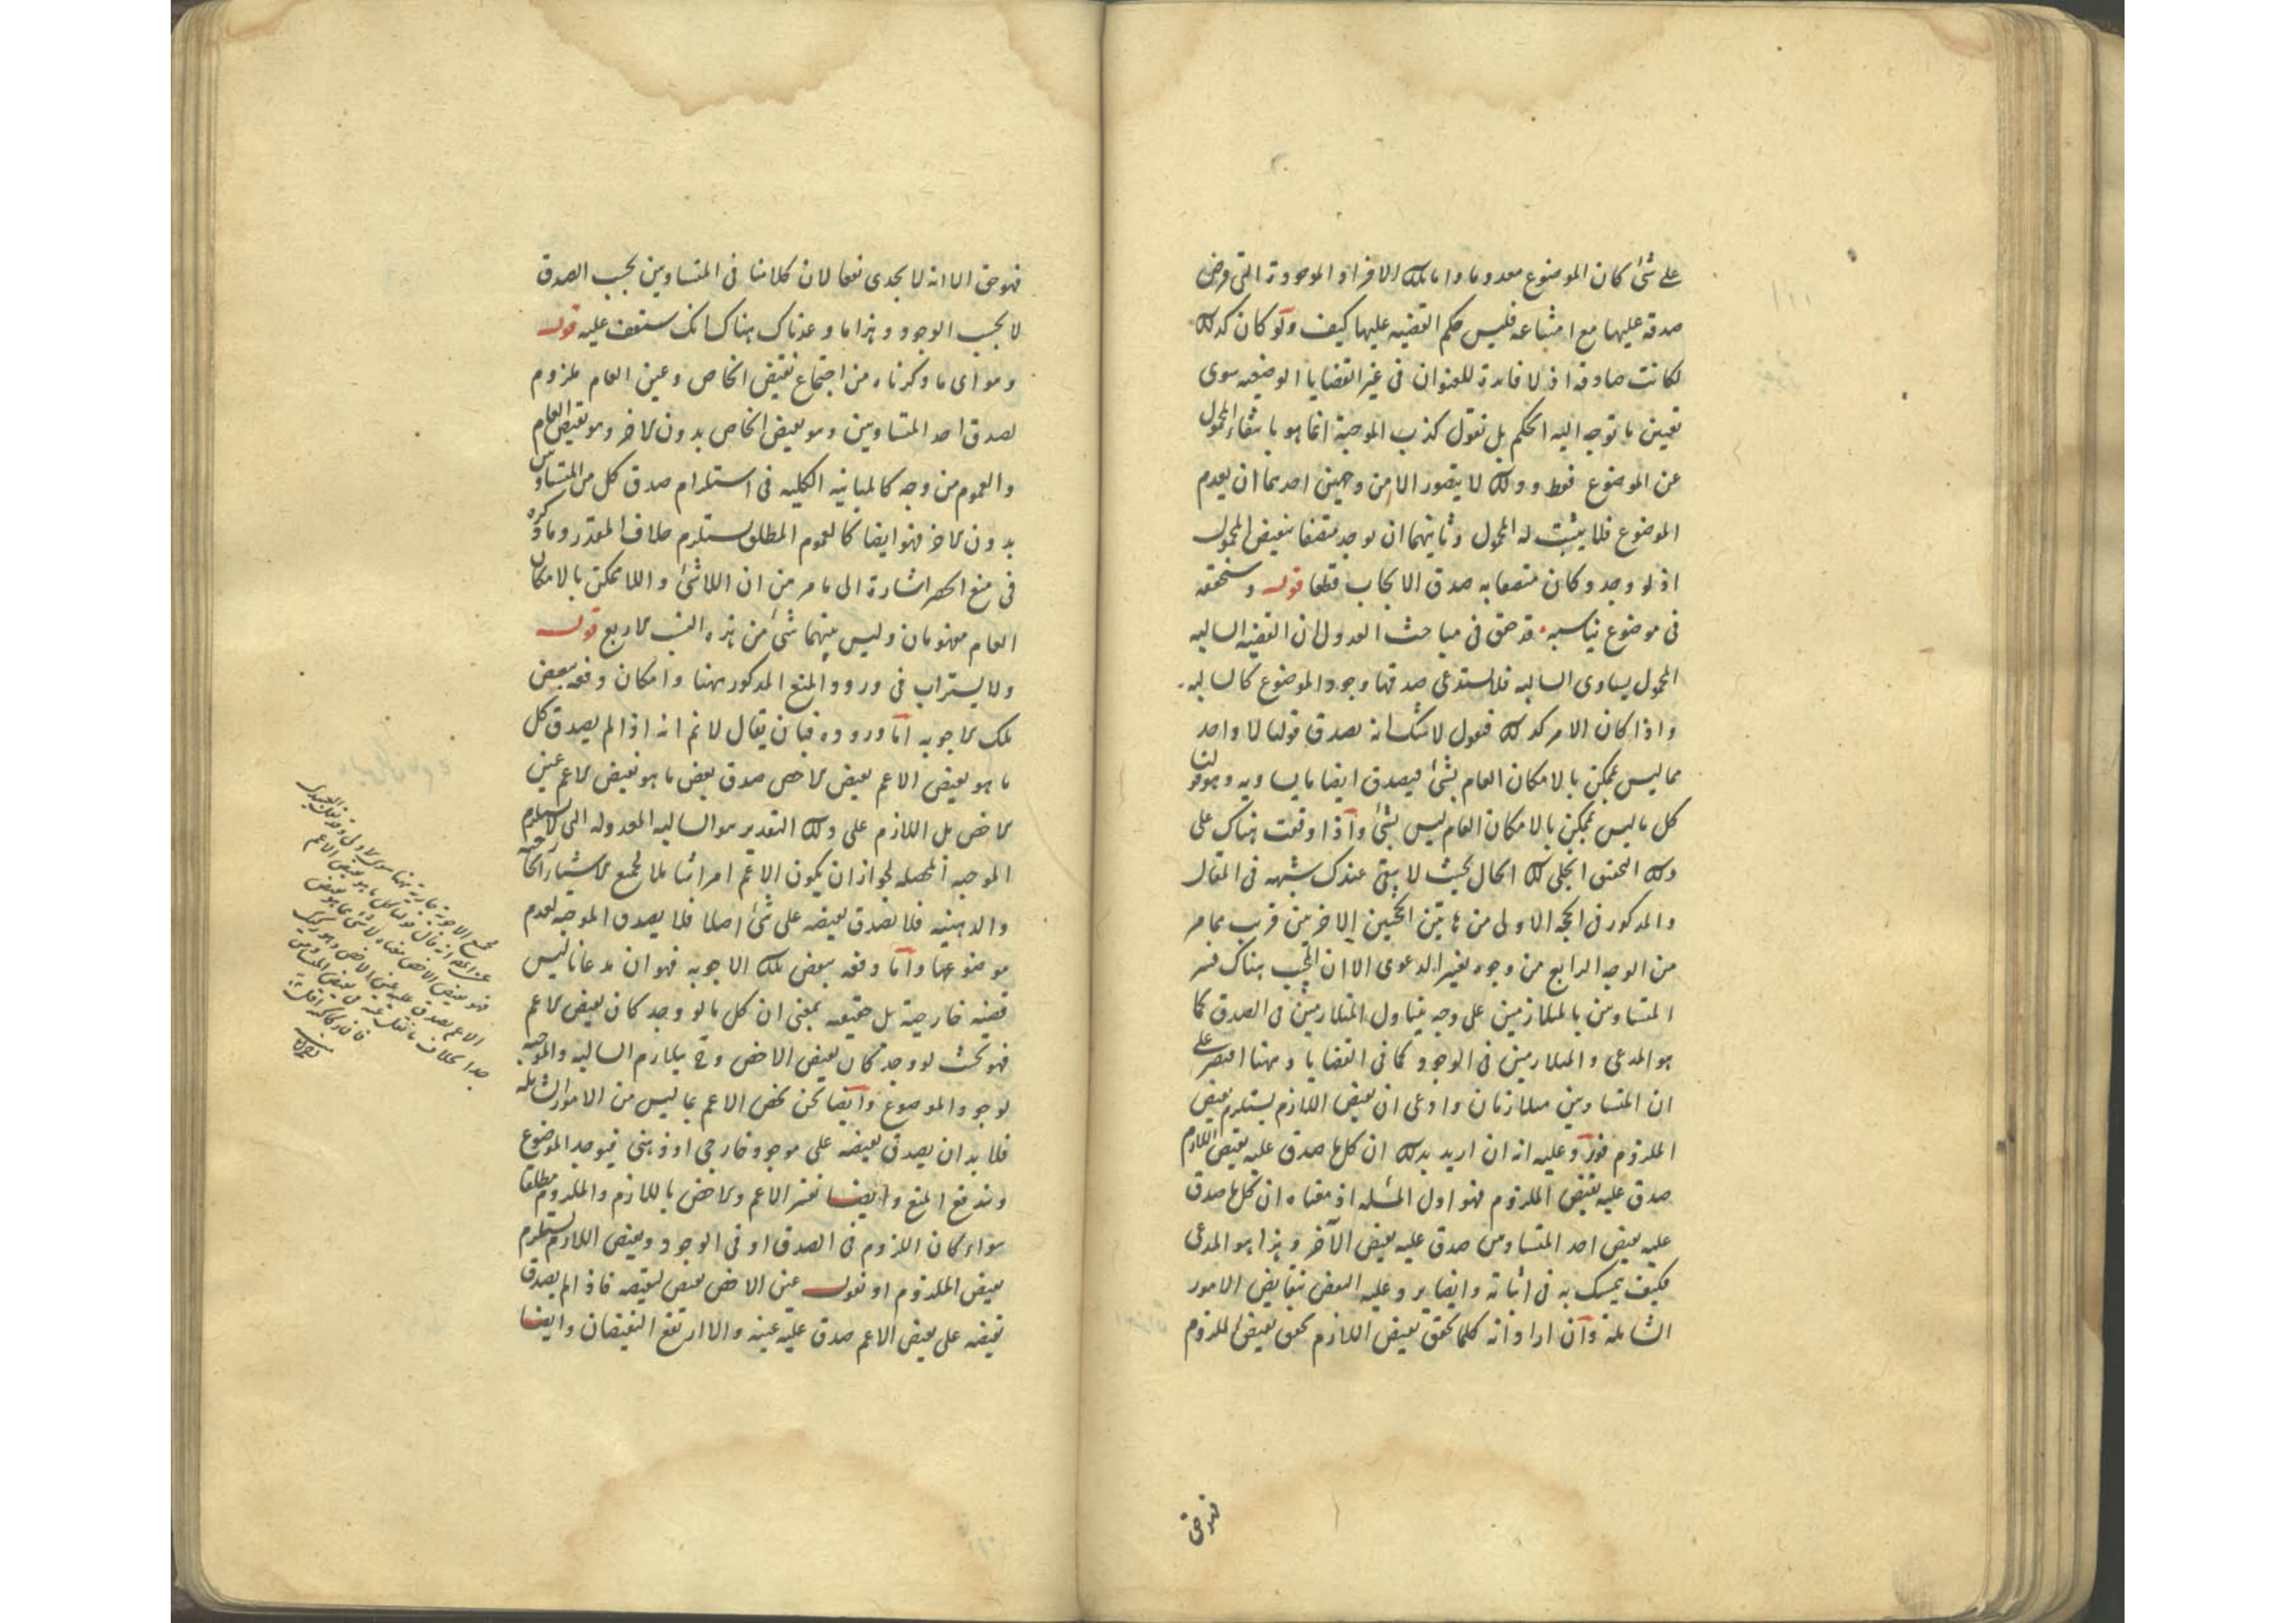 على شئ كان الموضوع معدوما واما تلك الافراد الموجودة التى فرض
صدقه عليها مع امتناعه فليس حكم القضيه عليها كيف ولو كان كذلك
لكانت صادقه اذ لا فايدة للعنوان فى غير القضايا الوضعيه سوى
تعيين ما توجه اليه الحكم بل نقول كذب الموجبة انما هو بانتفاء المحمول
عن الموضوع فقط وذلك لا يتصور الا من وجهين احدهما ان يعدم
الموضوع فلا يثبت له المحمول وثانيهما ان يوجد متصفا بنقيض المحمول
اذ لو وجد وكان متصفا به صدق الايجاب قطعا قوله وسنحققه
فى موضوع يناسبه قد حقق فى مباحث العدول ان القضيه السالبه
المحمول يساوى السالبه فلا يستدعى صدقها وجود الموضوع كالسالبه
واذا كان الامر كذلك فنقول لا شك انه يصدق قولنا لا واحد
مما ليس بممكن بالامكان العام بشئ فيصدق ايضا ما يساويه وهو قولنا
كل ما ليس بممكن بالامكان العام ليس بشئ واذا وقفت هناك على
ذلك التحقق انجلى لك الحال بحيث لا يبقى عندك شبهه فى المقال
والمذكور فى الحجه الاولى من هاتين الحجتين الاخريين قريب مما مر
من الوجه الرابع من وجوه تغيير الدعوى الا ان المجيب هناك فسر
المتساويين بالمتلازمين على وجه يتناول المتلازمين فى الصدق كما
هو المدعى والمتلازمين فى الوجود كما فى القضايا وههنا اقتصر على
ان المتساويين متلازمان وادعى ان نقيض اللازم يستلزم نقيض
الملزوم فورد عليه انه ان اريد بذلك ان كل ما صدق عليه نقيض اللازم
صدق عليه نقيض الملزوم فهو اول المسئله اذ معناه ان كل ما صدق
عليه نقيض احد المتساويين صدق عليه نقيض الآخر وهذا هو المدعى
فكيف يتمسك به فى اثباته وايضا يرد عليه النقض بنقايض الامور
الشاملة وان اراد انه كلما تحقق نقيض اللازم تحقق نقيض الملزوم
فهو حق
فهو حق الا انه لا يجدى نفعا لان كلامنا فى المتساويين بحسب الصدق
لا بحسب الوجود وهذا ما وعدناك هناك انك ستقف عليه قوله
وهو اى ما ذكرناه من اجتماع نقيض الخاص وعين العام ملزوم
لصدق احد المتساويين وهو نقيض الخاص بدون الاخر وهو نقيض العام
والعموم من وجه كالمباينه الكليه فى استلزام صدق كل من المتساويين
بدون الاخر فهو ايضا كالعموم المطلق يستلزم خلاف المقدر وما ذكره
فى منع الحصر اشارة الى ما مر من ان اللاشئ واللاممكن بالامكان
العام مفهومان وليس بينهما شئ من هذه النسب الاربع قوله
ولا يستراب فى ورود المنع المذكور ههنا وامكان دفعه ببعض
تلك الاجوبه اما وروده فبان يقال لا نم انه اذا لم يصدق كل
ما هو نقيض الاعم نقيض الاخص صدق بعض ما هو نقيض الاعم عين
الاخص بل اللازم على ذلك التقدير هو السالبه المعدوله التى لا تستلزم
الموجبه المحصله لجواز ان يكون الاعم امرا شاملا لجميع الاشياء الخارجيه
والذهنيه فلا يصدق نقيضه على شئ اصلا فلا يصدق الموجبه لعدم
موضوعها واما دفعه ببعض تلك الاجوبه فهو ان مدعانا ليس
قضيه خارجية بل حقيقيه بمعنى ان كل ما لو وجد كان نقيض الاعم
فهو بحيث لو وجد كان نقيض الاخص وح يتلازم السالبه والموجبه
لوجود الموضوع وايضا نحن نخص الاعم بما ليس من الامور الشامله
فلا بد ان يصدق نقيضه على موجود خارجى او ذهنى فيوجد الموضوع
ويندفع المنع وايضا نفسر الاعم والاخص باللازم والملزوم مطلقا
سواء كان اللزوم فى الصدق او فى الوجود ونقيض اللازم يستلزم
نقيض الملزوم او نقول عين الاخص نقيض لنقيضه فاذا لم يصدق
نقيضه على نقيض الاعم صدق عليه عينه والا ارتفع النقيضان وايضا